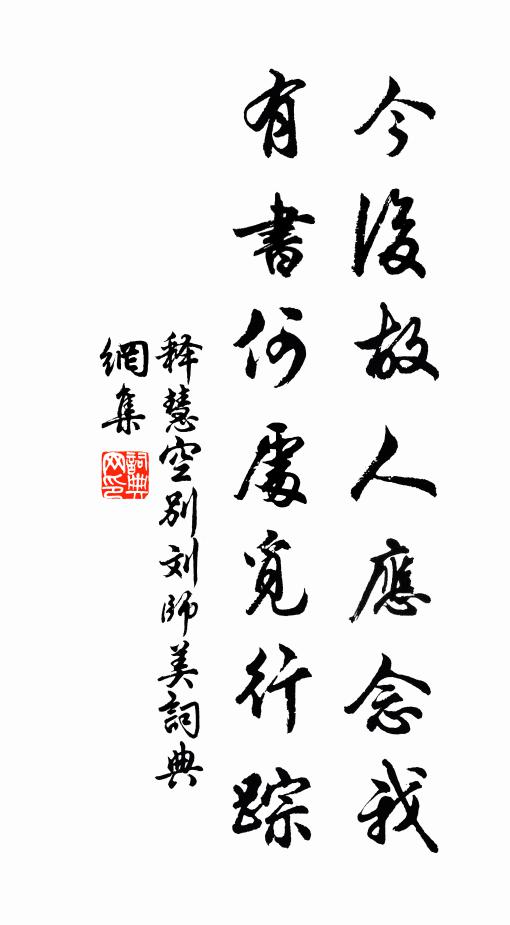 今後故人應念我
有書何處覓行踪
释慧空别刘師美詞典
網集
詞典网印